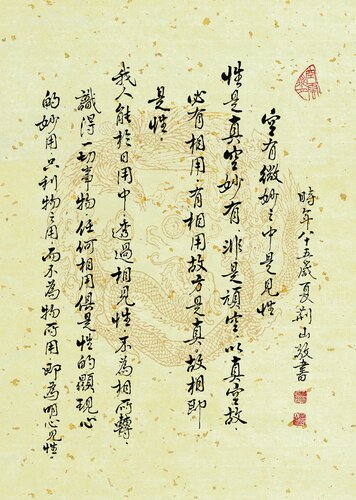 時年八十五歲夏荊山敬書
空有微妙之中是見性
性是真空妙有，非是頑空，以真空故
必有相用，有相用故，方是真，故相即
是性。
我人能於日用中，透過相見性，不為相所轉
識得一切事物，任何相用俱是性的顯現，心
的妙用只利物之用，而不為物所用，即為明心見性。